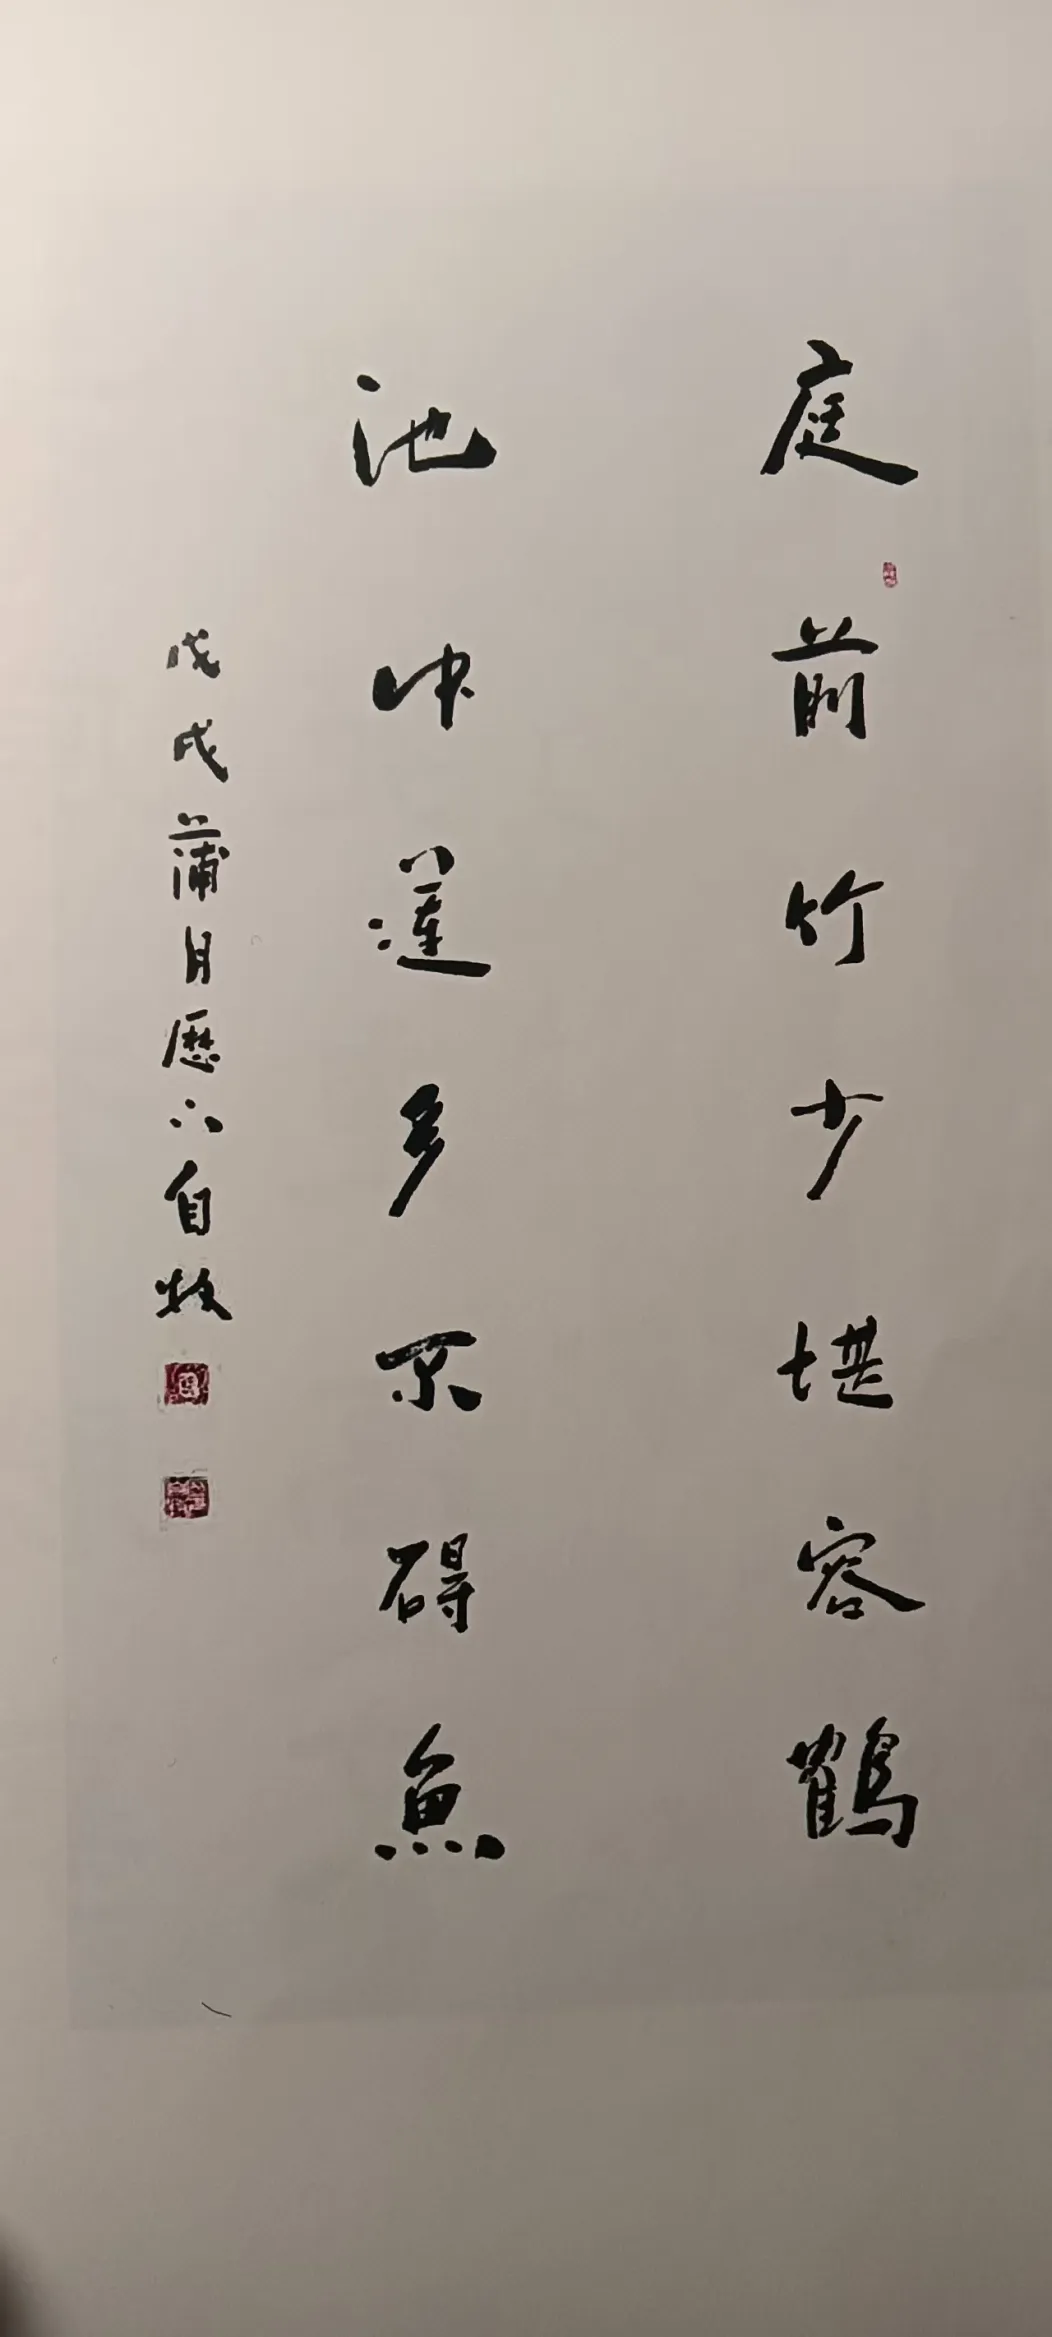 庭前竹少堪容鶴
池中蓮多不礙魚
戊戌蒲月歷下自牧